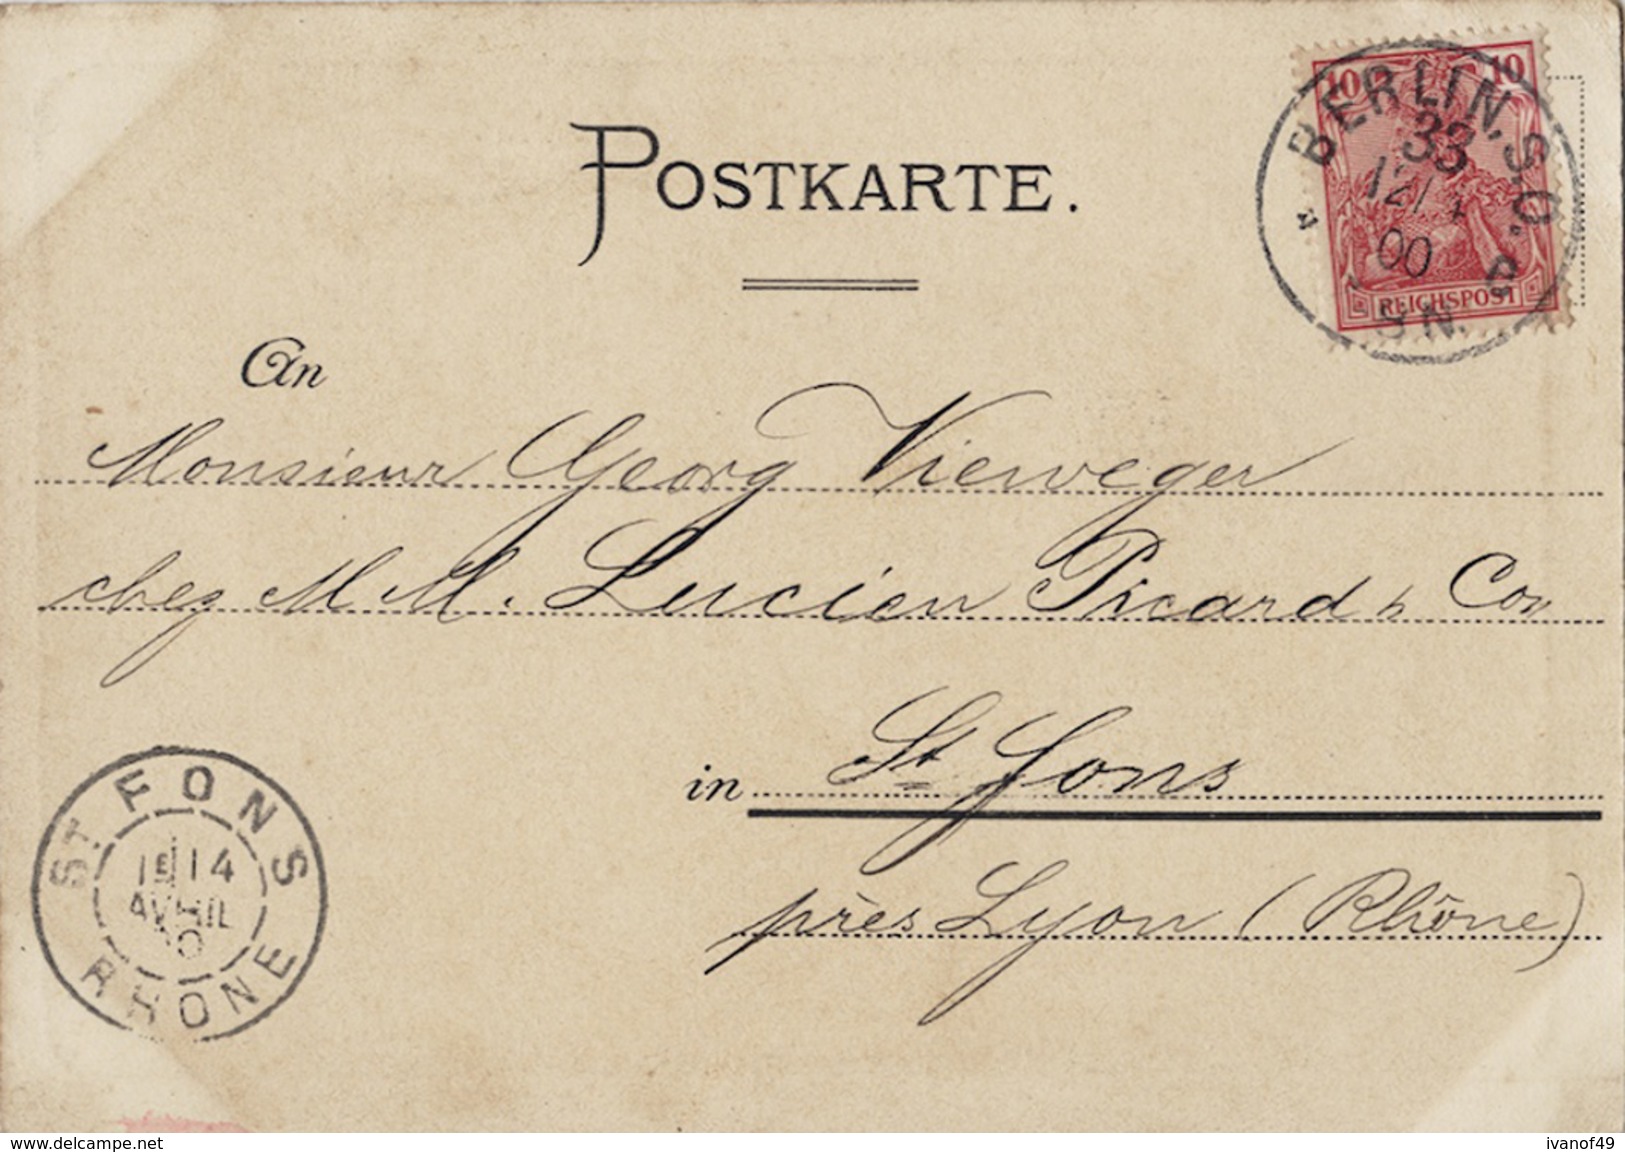 POSTKARTE.
10 10
BERLIN, S.O.
33
12/4
00
REICHSPOST
An
Monsieur Georg Vieweger
chez M.M. Lucien Picard & Con
in St Fons
près Lyon (Rhône)
ST FONS
14
AVRIL
RHONE
www.delcampe.net
ivanof49